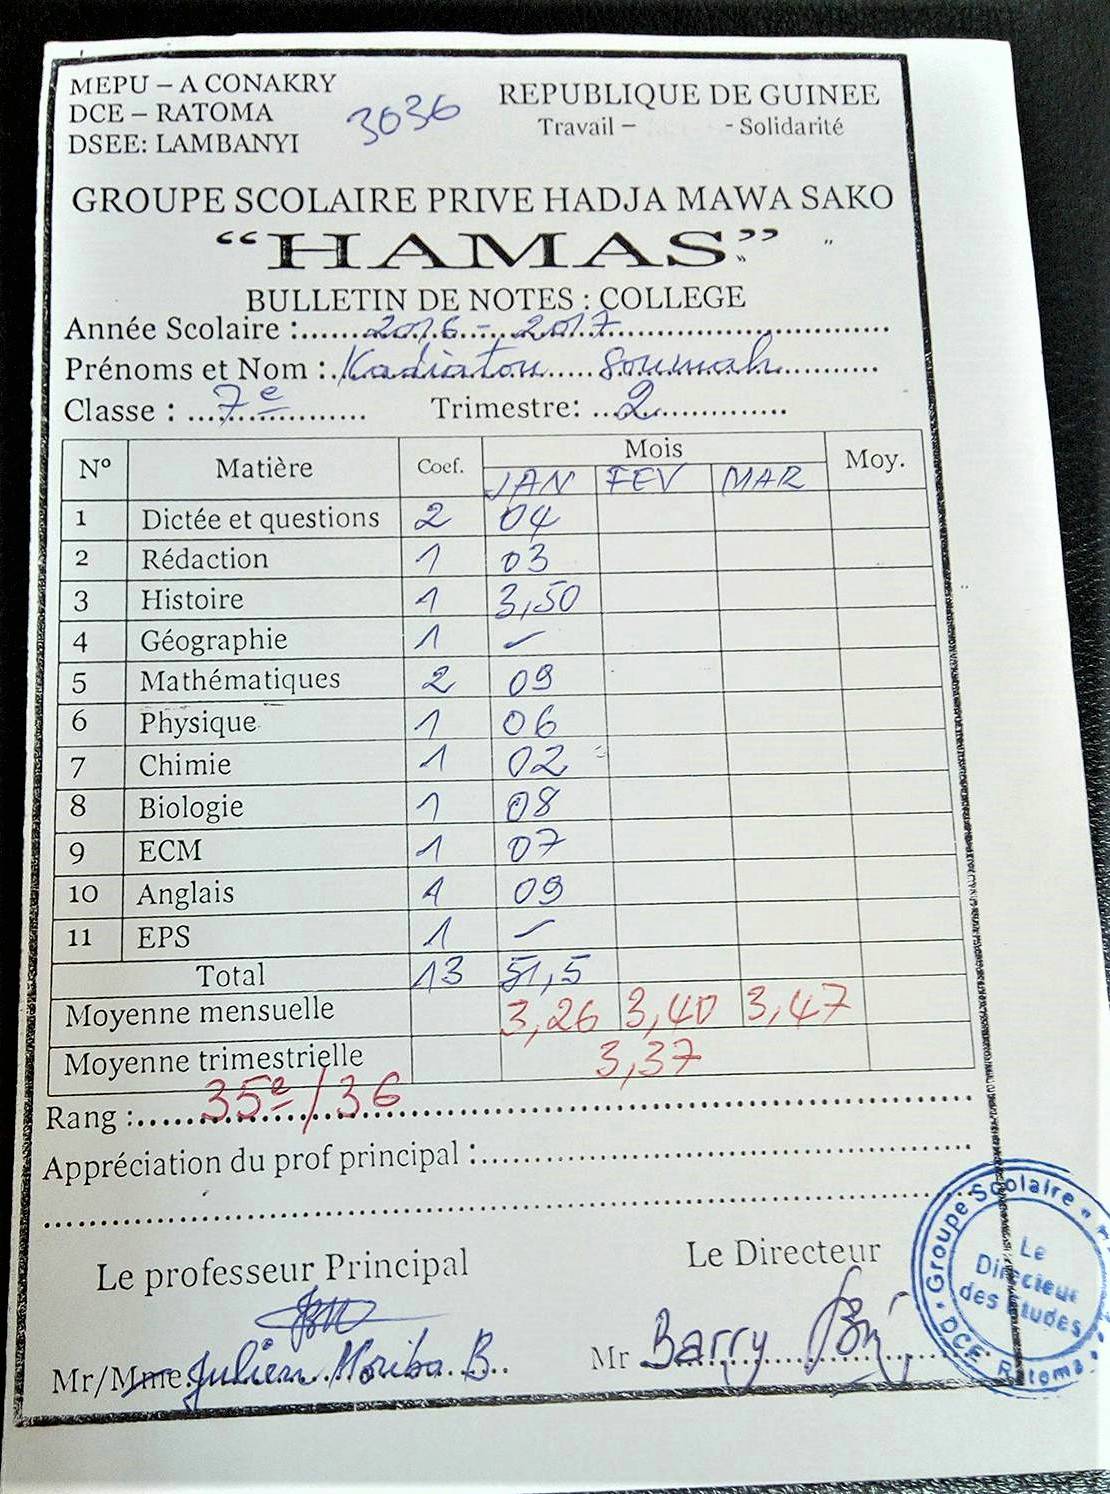 MEPU – A CONAKRY
DCE – RATOMA
DSEE: LAMBANYI
3036
REPUBLIQUE DE GUINEE
Travail – - Solidarité
GROUPE SCOLAIRE PRIVE HADJA MAWA SAKO
“HAMAS”
BULLETIN DE NOTES : COLLEGE
Année Scolaire : 2016 - 2017
Prénoms et Nom : Kadiatou Soumah
Classe : 7e Trimestre: 2
N° Matière Coef. Mois Moy.
JAN FEV MAR
1 Dictée et questions 2 04
2 Rédaction 1 03
3 Histoire 1 3,50
4 Géographie 1 –
5 Mathématiques 2 09
6 Physique 1 06
7 Chimie 1 02
8 Biologie 1 08
9 ECM 1 07
10 Anglais 1 09
11 EPS 1 –
Total 13 51,5
Moyenne mensuelle 3,26 3,40 3,47
Moyenne trimestrielle 3,37
Rang : 35e/36
Appréciation du prof principal :
Le professeur Principal
Le Directeur
Mr/Mme Julien Moriba B.
Mr Barry
Groupe Scolaire
Le
Directeur
des Etudes
DCE Ratoma